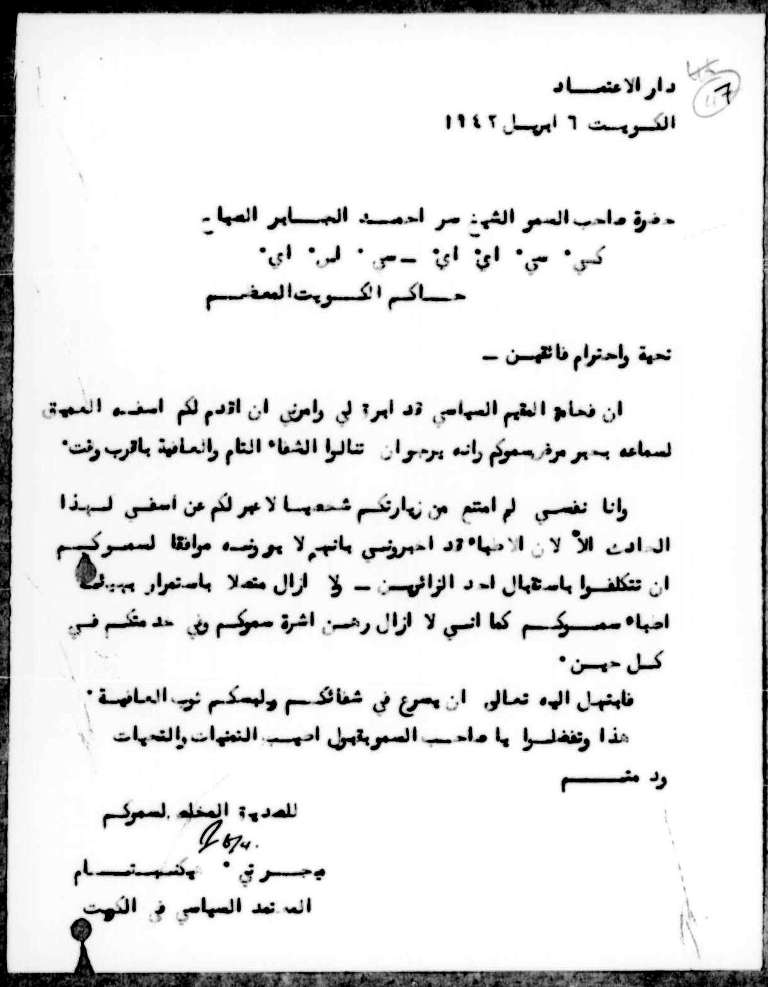 دار الاعتماد
47
الكويت ٦ ابريل ١٩٤٢
حضرة صاحب السمو الشيخ سر احمد الجابر الصباح
كي٠ سي٠ اي٠ اي٠ ـ سي٠ اس٠ اي٠
حاكم الكويت المعظم
تحية واحترام فائقين ـ
ان فخامة المقيم السياسي قد ابرق لي وامرني ان اقدم لكم اسفه العميق
لسماعه بخبر مرض سموكم وانه يرجو ان تنالوا الشفاء التام والعافية باقرب وقت٠
وانا نفسي لم امتنع من زيارتكم شخصيا لاعبر لكم عن اسفي لهذا
الحادث الا لان الاطباء قد اخبروني بانهم لا يرونه موافقا لسموكم
ان تتكلفوا باستقبال احد الزائرين ـ ولا ازال متصلا باستمرار
اطباء سموكم كما انني لا ازال رهن اشرة سموكم وفي خدمتكم في
كل حين٠
فابتهل اليه تعالى ان يسرع في شفائكم ويلبسكم ثوب العافية٠
هذا وتفضلوا يا صاحب السمو بقبول اطيب التمنيات والتحيات
ود متم
الصديق المخلص لسموكم
ميجر تي٠ هيكنبتام
المعتمد السياسي في الكويت